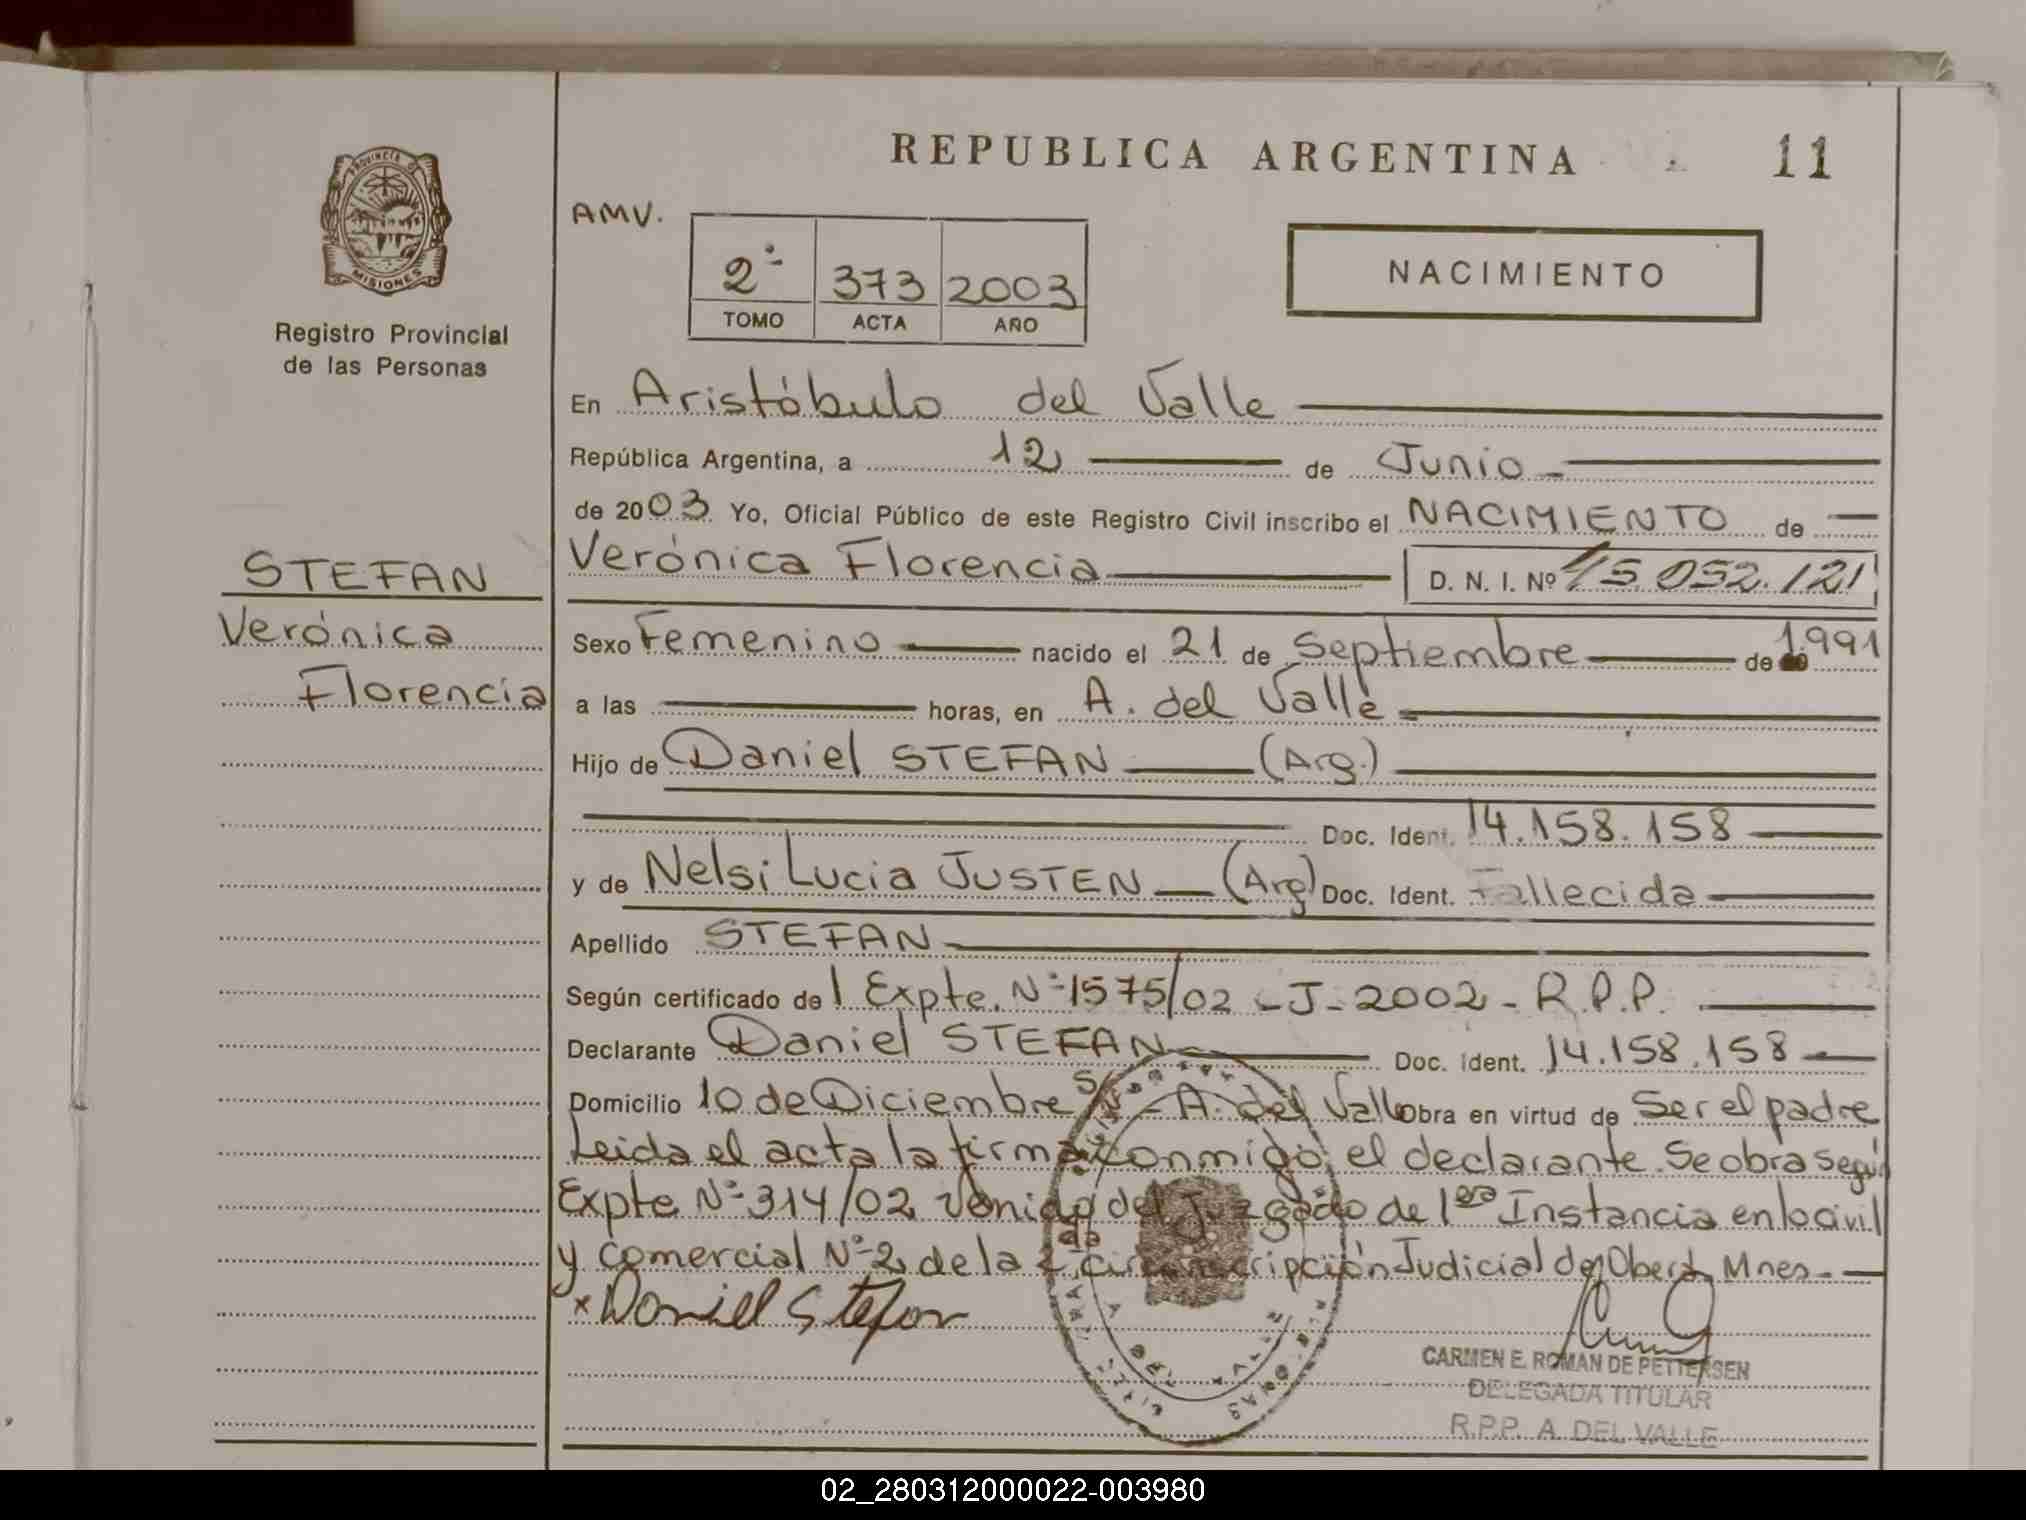 PROVINCIA DE
MISIONES
Registro Provincial
de las Personas
STEFAN
Verónica
Florencia
REPUBLICA ARGENTINA
11
AMV.
2º 373 2003
TOMO ACTA AÑO
NACIMIENTO
En Aristóbulo del Valle
República Argentina, a 12 de Junio
de 2003 Yo, Oficial Público de este Registro Civil inscribo el NACIMIENTO de
Verónica Florencia D. N. I. Nº 45.052.121
Sexo Femenino nacido el 21 de Septiembre de 1991
a las horas, en A. del Valle
Hijo de Daniel STEFAN (Arg.)
Doc. Ident. 14.158.158
y de Nelsi Lucia JUSTEN (Arg) Doc. Ident. Fallecida
Apellido STEFAN
Según certificado de l Expte. Nº 1575/02 - J - 2002 - R.P.P.
Declarante Daniel STEFAN Doc. Ident. 14.158.158
Domicilio 10 de Diciembre - A. del Valle Obra en virtud de Ser el padre
Leida el acta la firma conmigo, el declarante. Se obra según
Expte Nº 314/02 Venido del Juzgado de 1era Instancia en lo civil
y comercial Nº 2, de la 2 circunscripción Judicial de Oberá, Mnes.
x Daniel Stefan
CARMEN E. ROMAN DE PETTERSEN
DELEGADA TITULAR
R.P.P. A. DEL VALLE
02_280312000022-003980